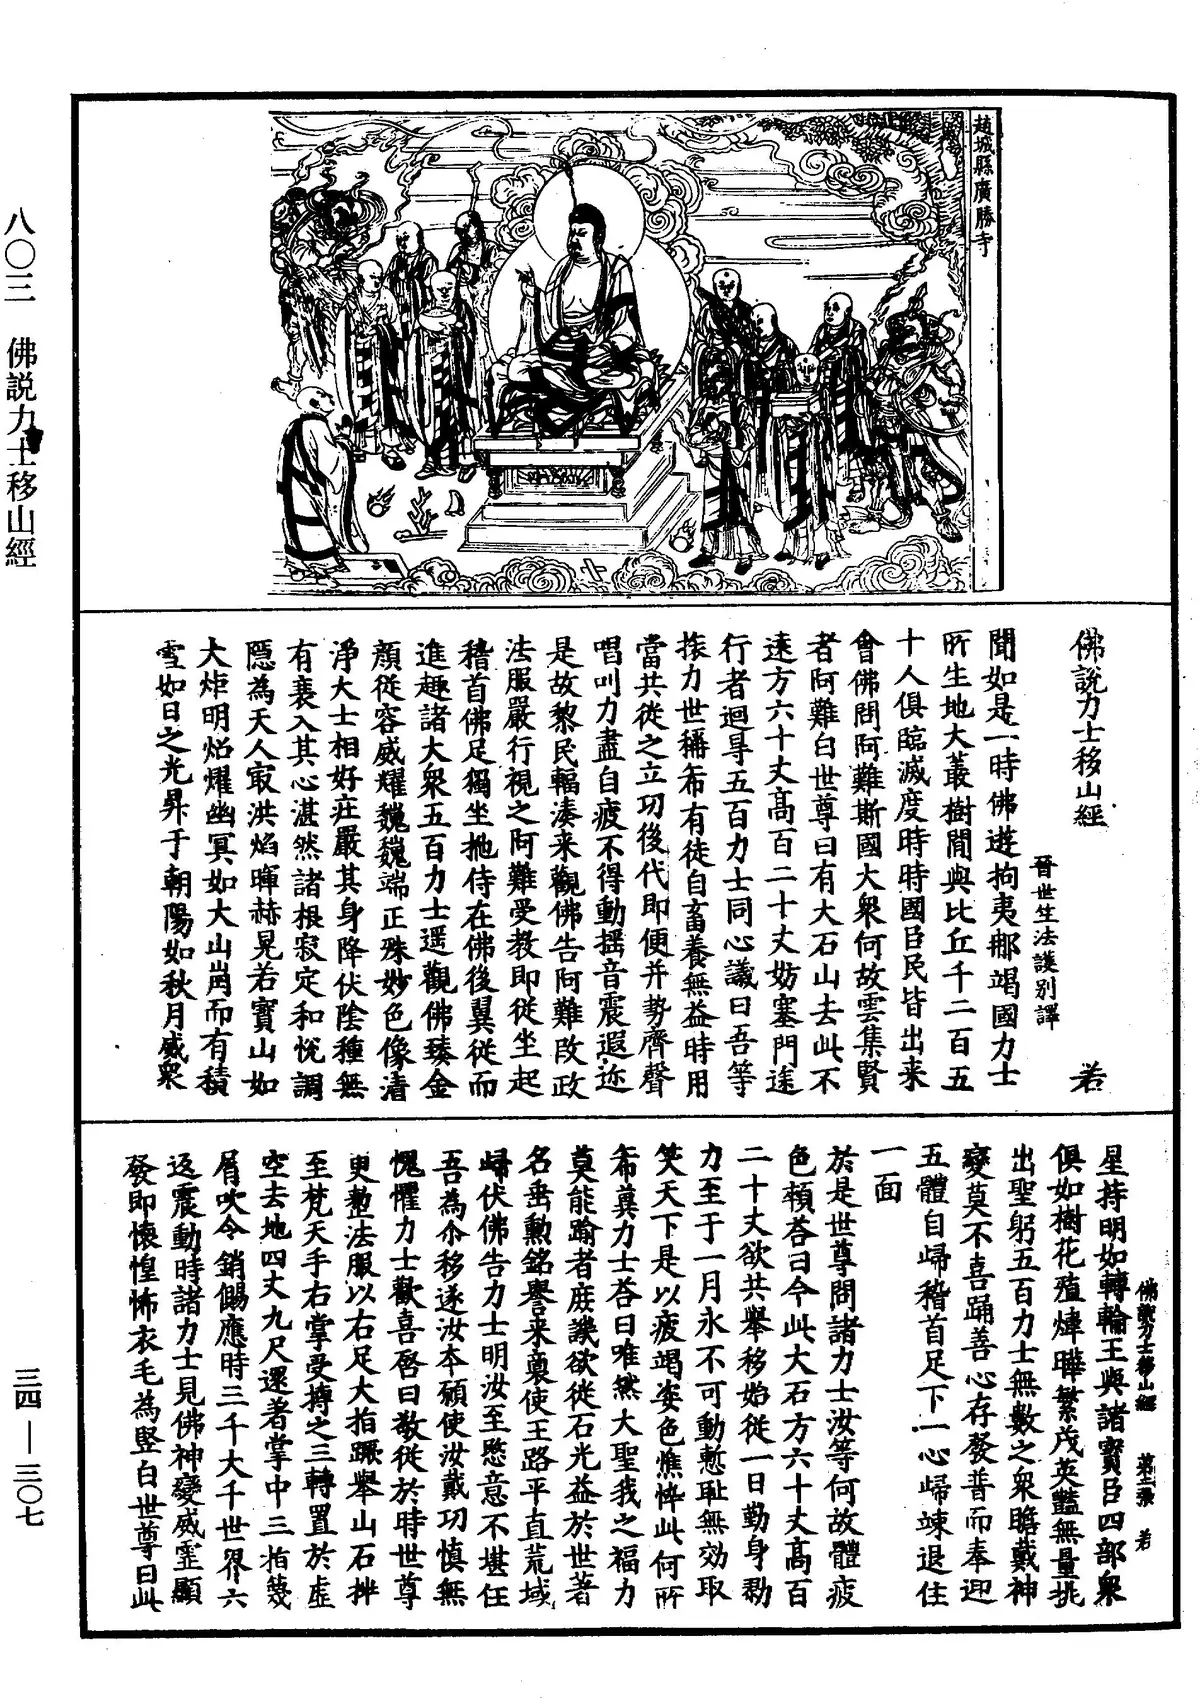 趙城縣廣勝寺
八〇三　佛說力士移山經
三四—三〇七
佛說力士移山經　若
晉世生法護別譯
聞如是一時佛遊拘夷那竭國力士
所生地大叢樹間與比丘千二百五
十人俱臨滅度時時國臣民皆出来
會佛問阿難斯國大衆何故雲集賢
者阿難白世尊曰有大石山去此不
遠方六十丈高百二十丈妨塞門途
行者迴㝵五百力士同心議曰吾等
膂力世稱希有徒自畜養無益時用
當共徙之立功後代即便并勢齊聲
唱叫力盡自疲不得動摇音震遐迩
是故黎民輻湊来觀佛告阿難改政
法服嚴行視之阿難受教即從坐起
稽首佛足獨坐拖侍在佛後翼從而
進趣諸大衆五百力士遥觀佛臻金
顏從容威耀巍巍端正殊妙色像清
淨大士相好庄嚴其身降伏陰種無
有衰入其心湛然諸根寂定和悅調
隱為天人㝡洪焰暉赫晃若寳山如
大炬明焰耀幽冥如大山崗而有積
雪如日之光昇于朝陽如秋月盛衆
佛說力士移山經　第二張　若
星持明如轉輪王與諸寳臣四部衆
俱如樹花殖煒曄繁茂英豔無量挑
出聖躬五百力士無數之衆瞻戴神
變莫不喜踊善心存發普而奉迎
五體自歸稽首足下一心歸竦退住
一面
於是世尊問諸力士汝等何故體疲
色頓荅曰今此大石方六十丈高百
二十丈欲共舉移始從一日勤身勠
力至于一月永不可動慙耻無効取
笑天下是以疲竭姿色憔悴此何所
希冀力士荅曰唯然大聖我之福力
莫能踰者庶譏欲徙石光益於世著
名垂勲銘譽来裔使王路平直荒域
歸伏佛告力士明汝至愍意不堪任
吾為尒移遂汝本願使汝戴功慎無
愧懼力士歡喜啓曰敬從於時世尊
更整法服以右足大指蹶舉山石挑
至梵天手右掌受摶之三轉置於虛
空去地四丈九尺還著掌中三指蔑
屑吹令銷賜應時三千大千世界六
返震動時諸力士見佛神變威霊顯
發即懷惶怖衣毛為竪白世尊曰此